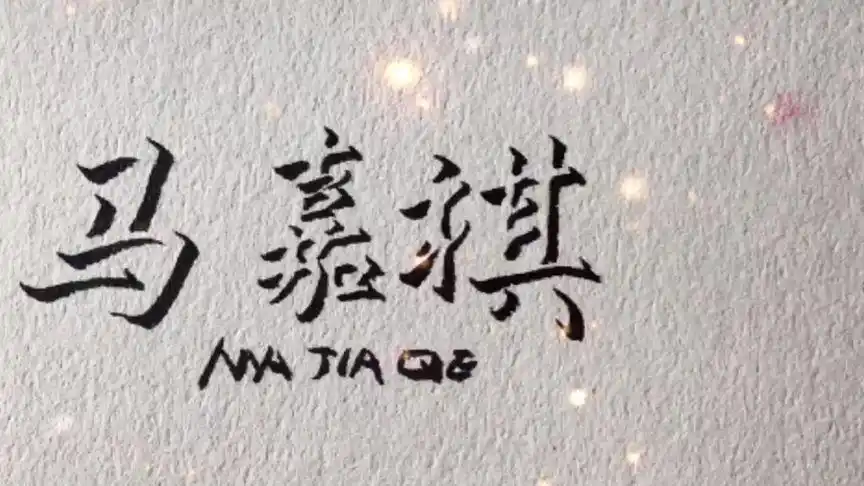 马嘉祺
MA JIA QE